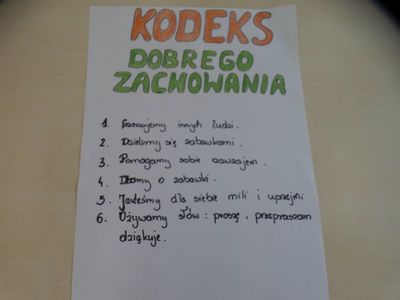 KODEKS
DOBREGO
ZACHOWANIA
1. Szanujemy innych ludzi.
2. Dzielimy się zabawkami.
3. Pomagamy sobie nawzajem.
4. Dbamy o zabawki.
5. Jesteśmy dla siebie mili i uprzejmi
6. Używamy słów: proszę, przepraszam
dziękuje.